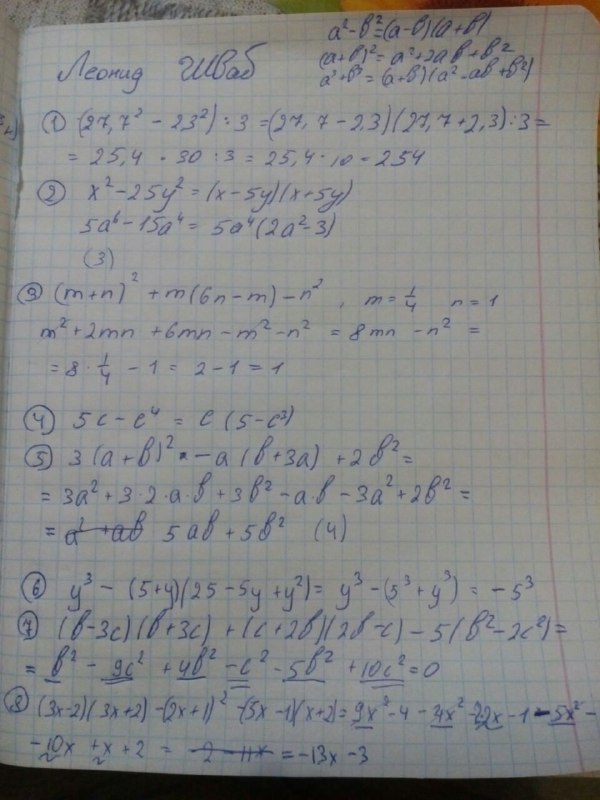 a² - b² = (a-b)(a+b)
(a+b)² = a² + 2ab + b²
a³ + b³ = (a+b)(a² - ab + b²)
Леонид Шваб
① (27,7² - 23²) : 3 = (27,7 - 2,3)(27,7 + 2,3) : 3 =
= 25,4 · 30 : 3 = 25,4 · 10 = 254
② x² - 25y² = (x - 5y)(x + 5y)
5a⁶ - 15a⁴ = 5a⁴(2a² - 3)
(3)
③ (m+n)² + m(6n - m) - n², m = 1/4 n = 1
m² + 2mn + 6mn - m² - n² = 8mn - n² =
= 8 · 1/4 - 1 = 2 - 1 = 1
④ 5c - c⁴ = c(5 - c³)
⑤ 3(a + b)² - a(b + 3a) + 2b² =
= 3a² + 3·2·a·b + 3b² - a·b - 3a² + 2b² =
= a² + ab 5ab + 5b² (4)
⑥ y³ - (5+y)(25 - 5y + y²) = y³ - (5³ + y³) = -5³
⑦ (b - 3c)(b + 3c) + (c + 2b)(2b - c) - 5(b² - 2c²) =
= b² - 9c² + 4b² - c² - 5b² + 10c² = 0
⑧ (3x-2)(3x+2) - (2x+1)² - (5x-1)(x+2) = 9x² - 4 - 4x² - 2x - 1 - 5x² -
- 10x + x + 2 = = -13x - 3